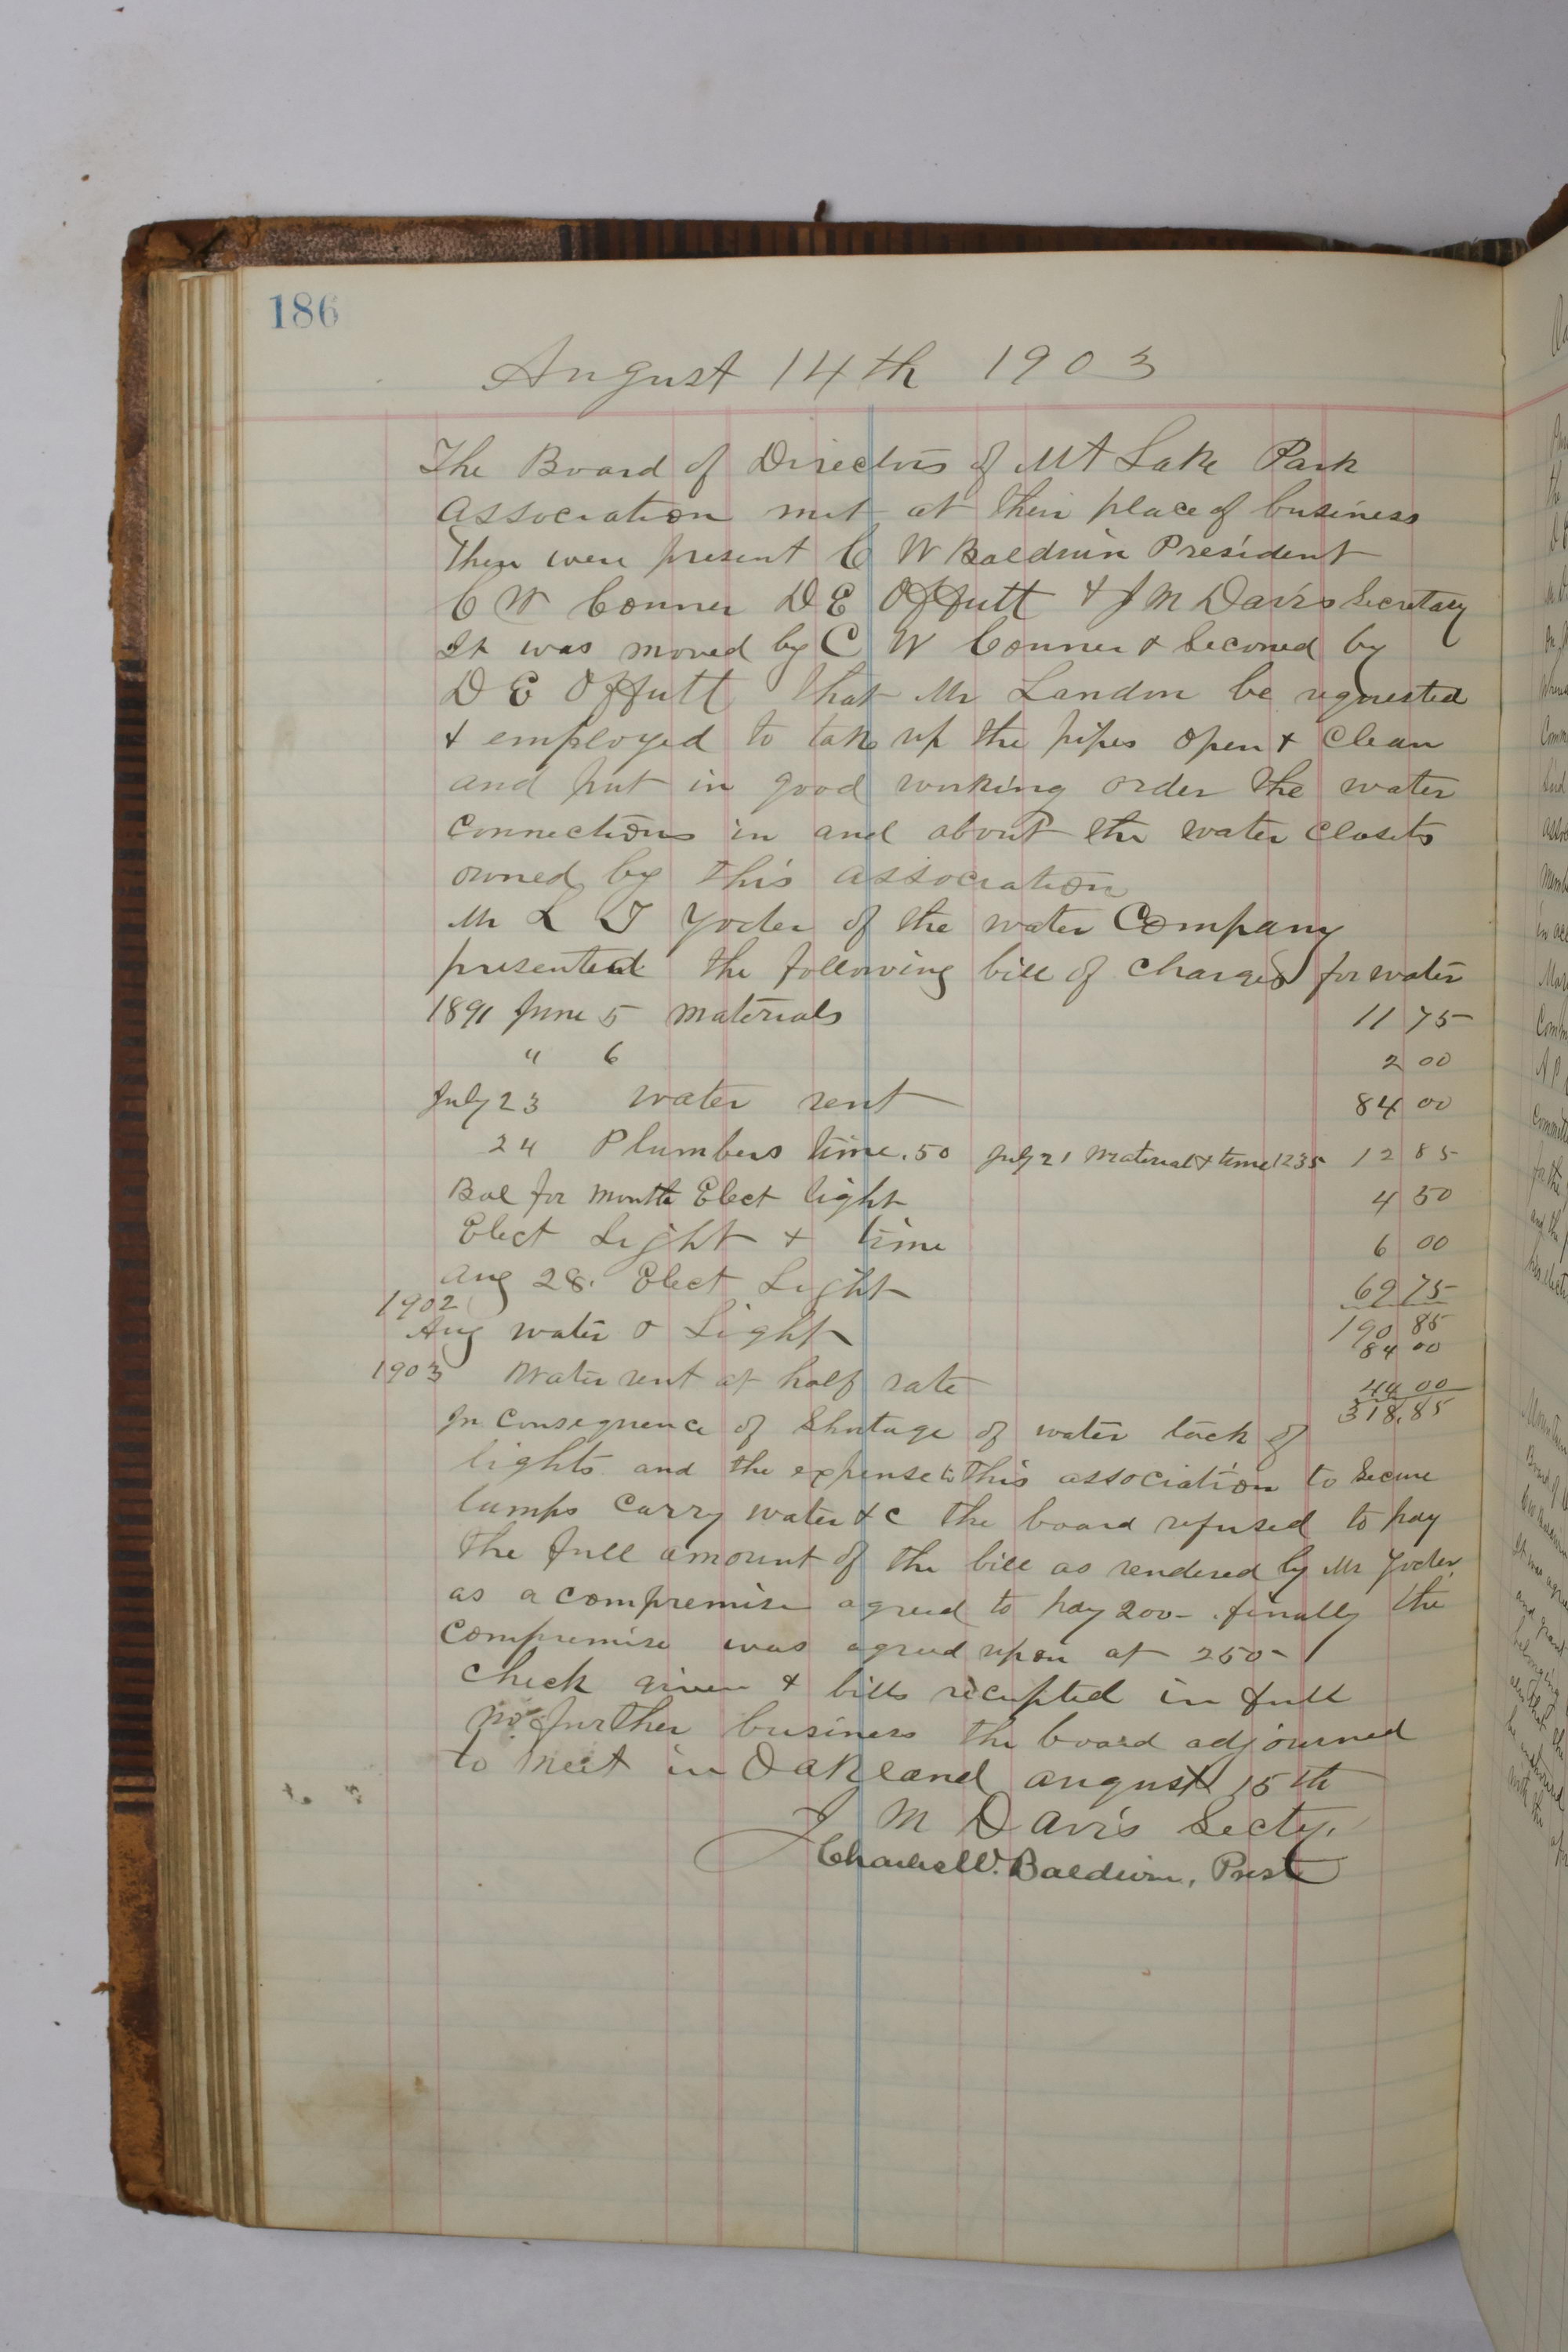 186
August 14th 1903
The Board of Directors of Mt Lake Park
Association met at their place of business
There were present C W Baldwin President
C W Conner D E Offutt & J M Davis Secretary
It was moved by C W Conner & Seconed by
D E Offutt that Mr Landon be requested
& employed to take up the pipes open & Clean
and put in good working order the water
Connections in and about the water Closets
owned by this association
Mr L T Yoder of the water Company
presented the following bill of Charges for water
1891 June 5 materials 11 75
" 6 2 00
July 23 water rent 84 00
24 Plumbers time .50 July 21 Material & time 1235 12 85
Bal for Month Elect light 4 50
Elect Light & time 6 00
Aug 28. Elect Light 69 75
190 85
1902
Aug water & Light 84 00
1903 Water rent at half rate 44 00
318.85
In Consequence of Shortage of water lack of
lights and the expense to this association to Secure
lamps Carry water &c the board refused to pay
the full amount of the bill as rendered by Mr Yoder
as a compremise agreed to pay 200- finally the
Compremise was agreed upon at 250-
Check given & bills recipted in full
No further business the board adjourned
to meet in Oakland august 15th
J M Davis Secty.
Charles W. Baldwin, Prest